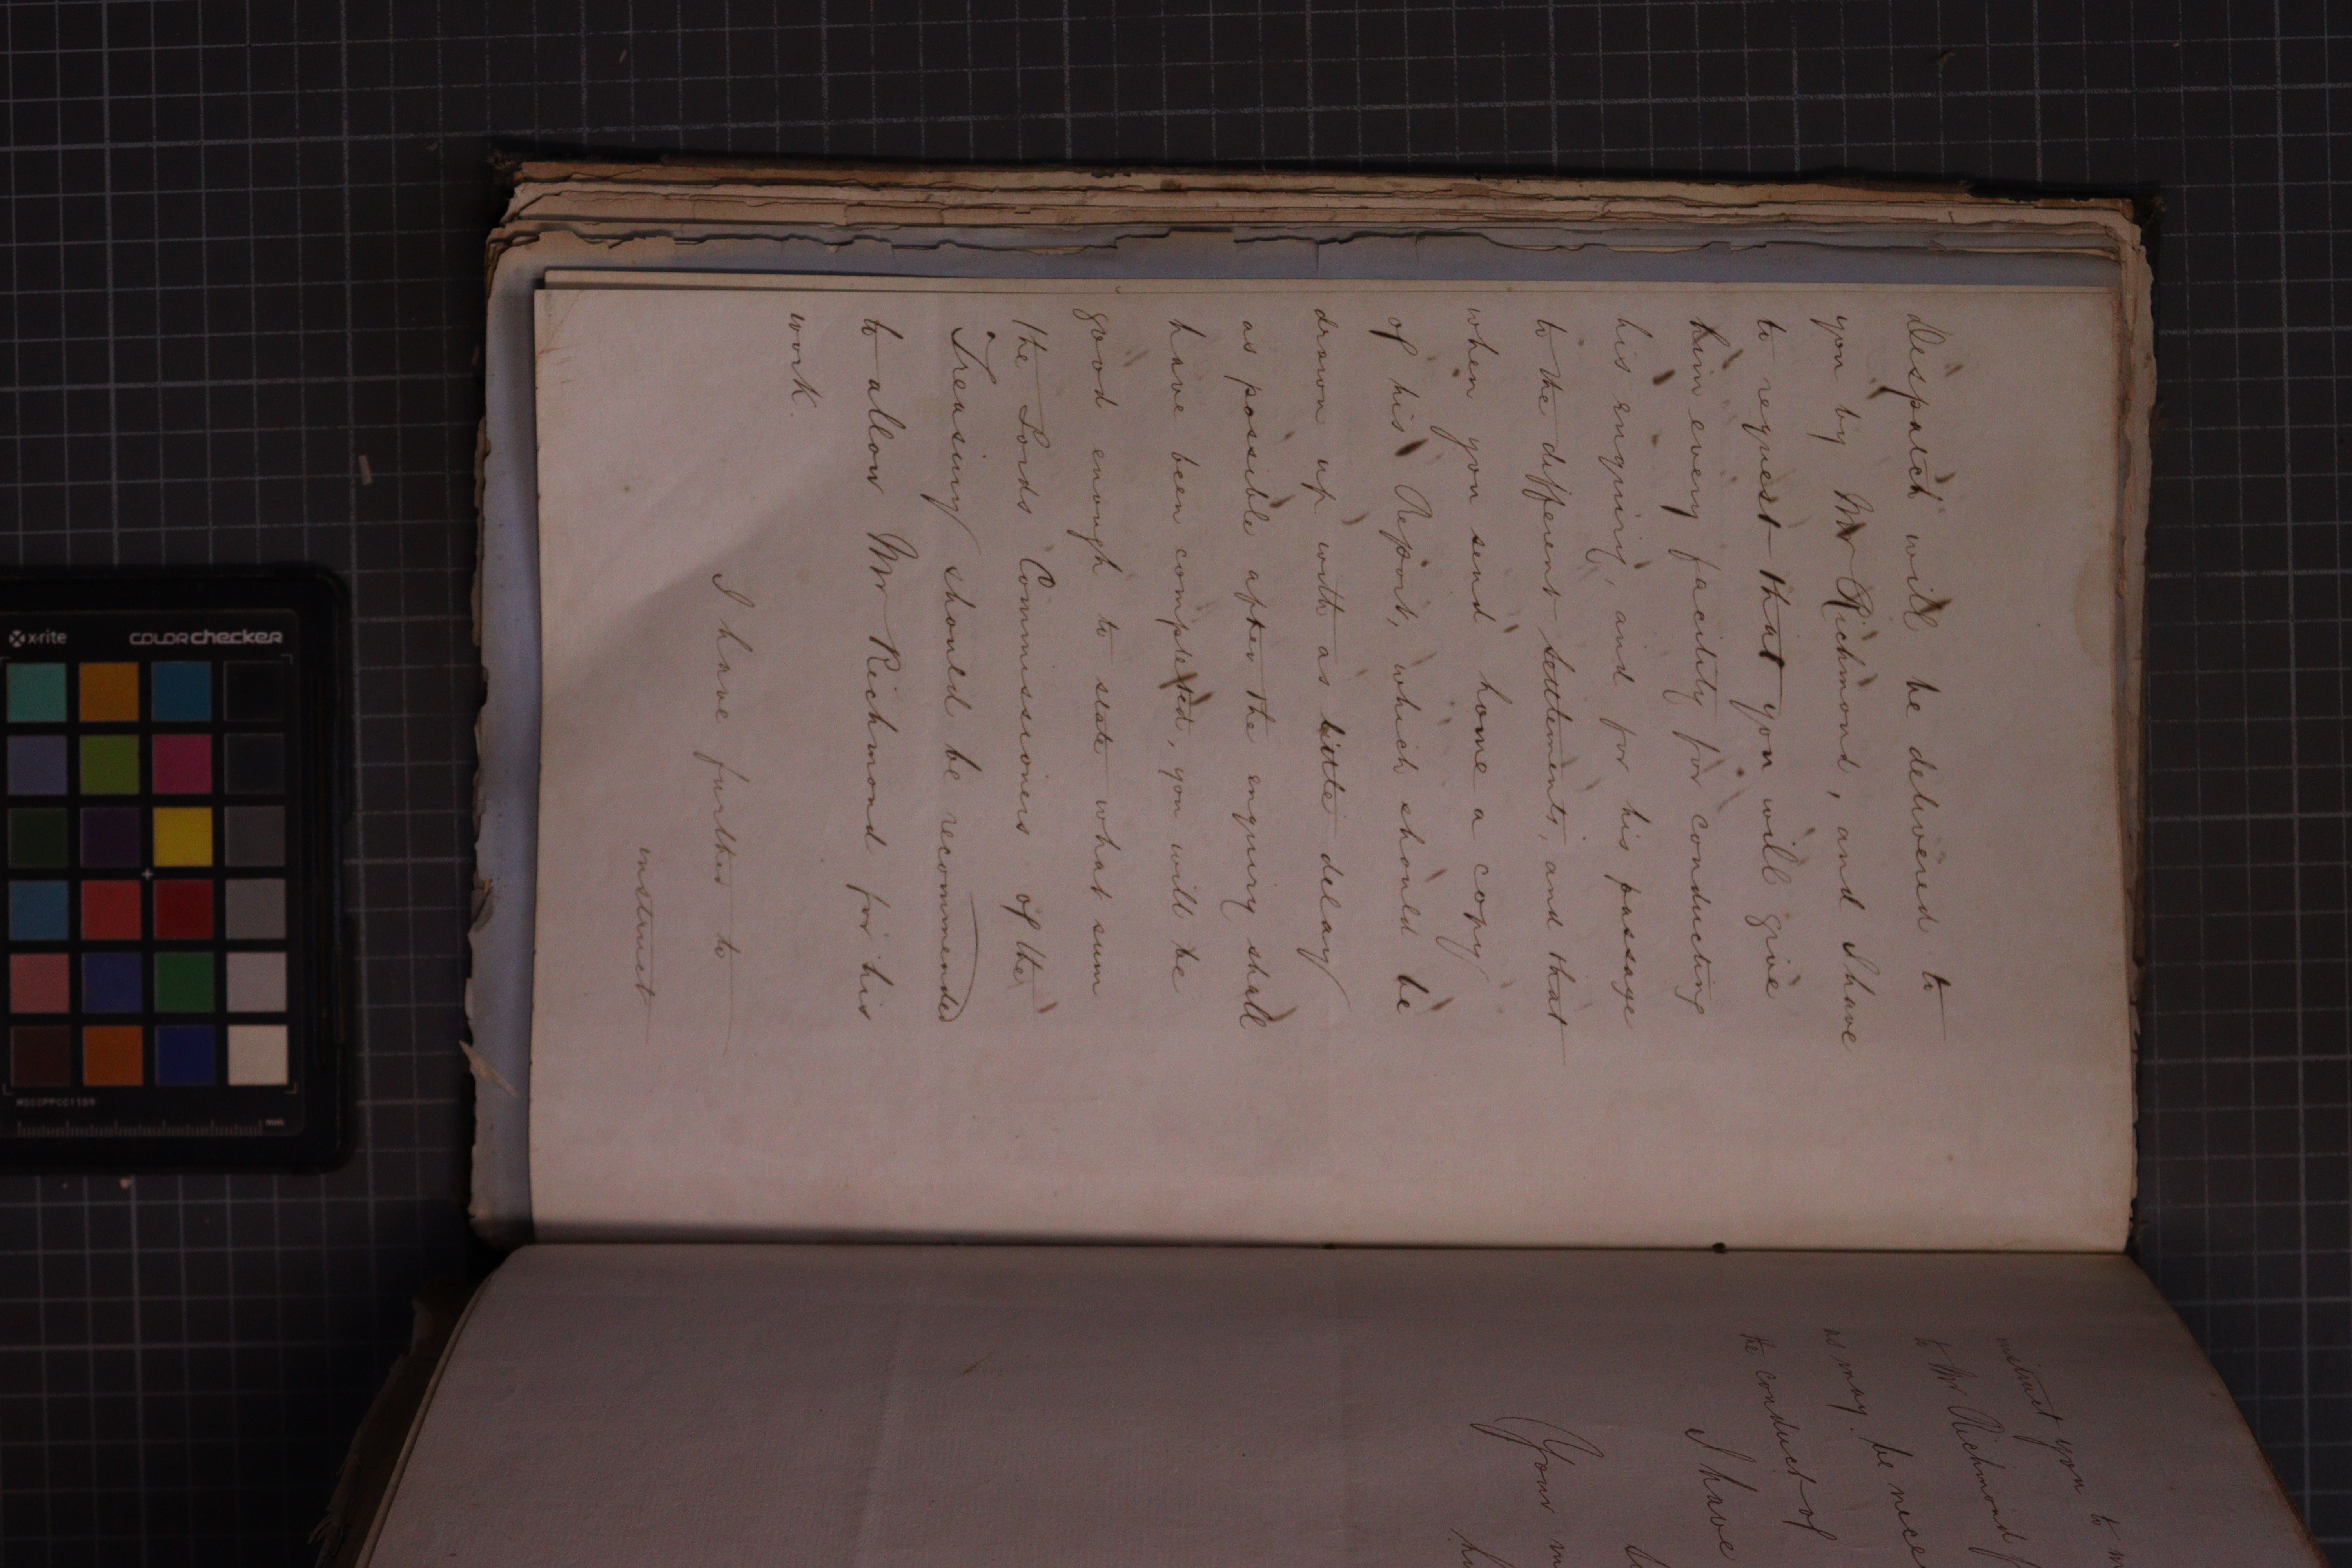 Despatch will be delivered to
you by Mr Richmond, and I have
to request that you will give
him every facility for conducting
his enquiry, and for his passage
to the different settlements, and that
when you send home a copy
of his Report, which should be
drawn up with as little delay
as possible after the enquiry shall
have been completed, you will be
good enough to state what sum
the Lords Commissioners of the
Treasury should be recommended
to allow Mr Richmond for his
work.
I have further to
instruct
instruct you to
to Mr Richmond
as may be nece
the conduct of
I have
Your
x-rite colorchecker
MSCCPPCC1109
mm